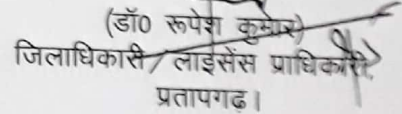 (डॉ0 रूपेश कुमार)
जिलाधिकारी/लाईसेंस प्राधिकारी,
प्रतापगढ़।